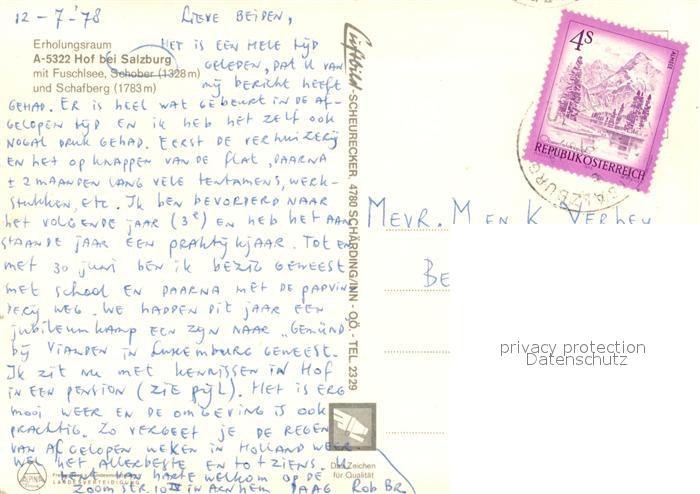 12-7-'78 Lieve Beiden,
Erholungsraum
A-5322 Hof bei Salzburg
mit Fuschlsee, Schober (1328 m)
und Schafberg (1783 m)
Het is een hele tijd
geleden, dat u van
mij bericht heeft
gehad. Er is heel wat gebeurt in de af-
gelopen tijd en ik heb het zelf ook
nogal druk gehad. Eerst de verhuizerij
en het op knappen van de flat, daarna
± 2 maanden lang vele tentamens, werk-
stukken, etc. Ik ben bevorderd naar
het volgende jaar (3e) en heb het aan
staande jaar een praktijkjaar. Tot en
met 30 juni ben ik bezig geweest
met school en daarna met de padvin
derij weg. We hadden dit jaar een
jubileumkamp een zijn naar "Gemünd"
bij Vianden in Luxemburg geweest.
Ik zit nu met kennissen in Hof
in een pension (zie pijl). Het is erg
mooi weer en de omgeving is ook
prachtig. Zo vergeet je de regen
van afgelopen weken in Holland weer.
Wel het allerbeste en tot ziens. U
bent van harte welkom op de
Zoomstr. 10 IV in Arnhem. Daag Rob Br.
Luftbild-SCHEURECKER, 4780 SCHÄRDING/INN - OÖ. - TEL. 23 29
4S
ALMSEE
REPUBLIK ÖSTERREICH
SALZBURG
Mevr. M en K Verhey
Be
privacy protection
Datenschutz
Das Zeichen
für Qualität
ALPINE
LANDESVERTEIDIGUNG